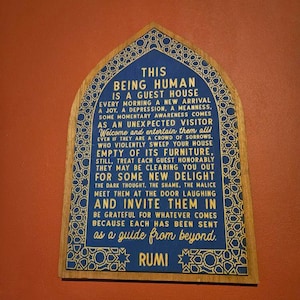 THIS
BEING HUMAN
IS A GUEST HOUSE
EVERY MORNING A NEW ARRIVAL
A JOY, A DEPRESSION, A MEANNESS,
SOME MOMENTARY AWARENESS COMES
AS AN UNEXPECTED VISITOR
Welcome and entertain them all!
EVEN IF THEY ARE A CROWD OF SORROWS,
WHO VIOLENTLY SWEEP YOUR HOUSE
EMPTY OF ITS FURNITURE,
STILL, TREAT EACH GUEST HONORABLY
THEY MAY BE CLEARING YOU OUT
FOR SOME NEW DELIGHT
THE DARK THOUGHT, THE SHAME, THE MALICE
MEET THEM AT THE DOOR LAUGHING
AND INVITE THEM IN
BE GRATEFUL FOR WHATEVER COMES
BECAUSE EACH HAS BEEN SENT
as a guide from beyond.
RUMI